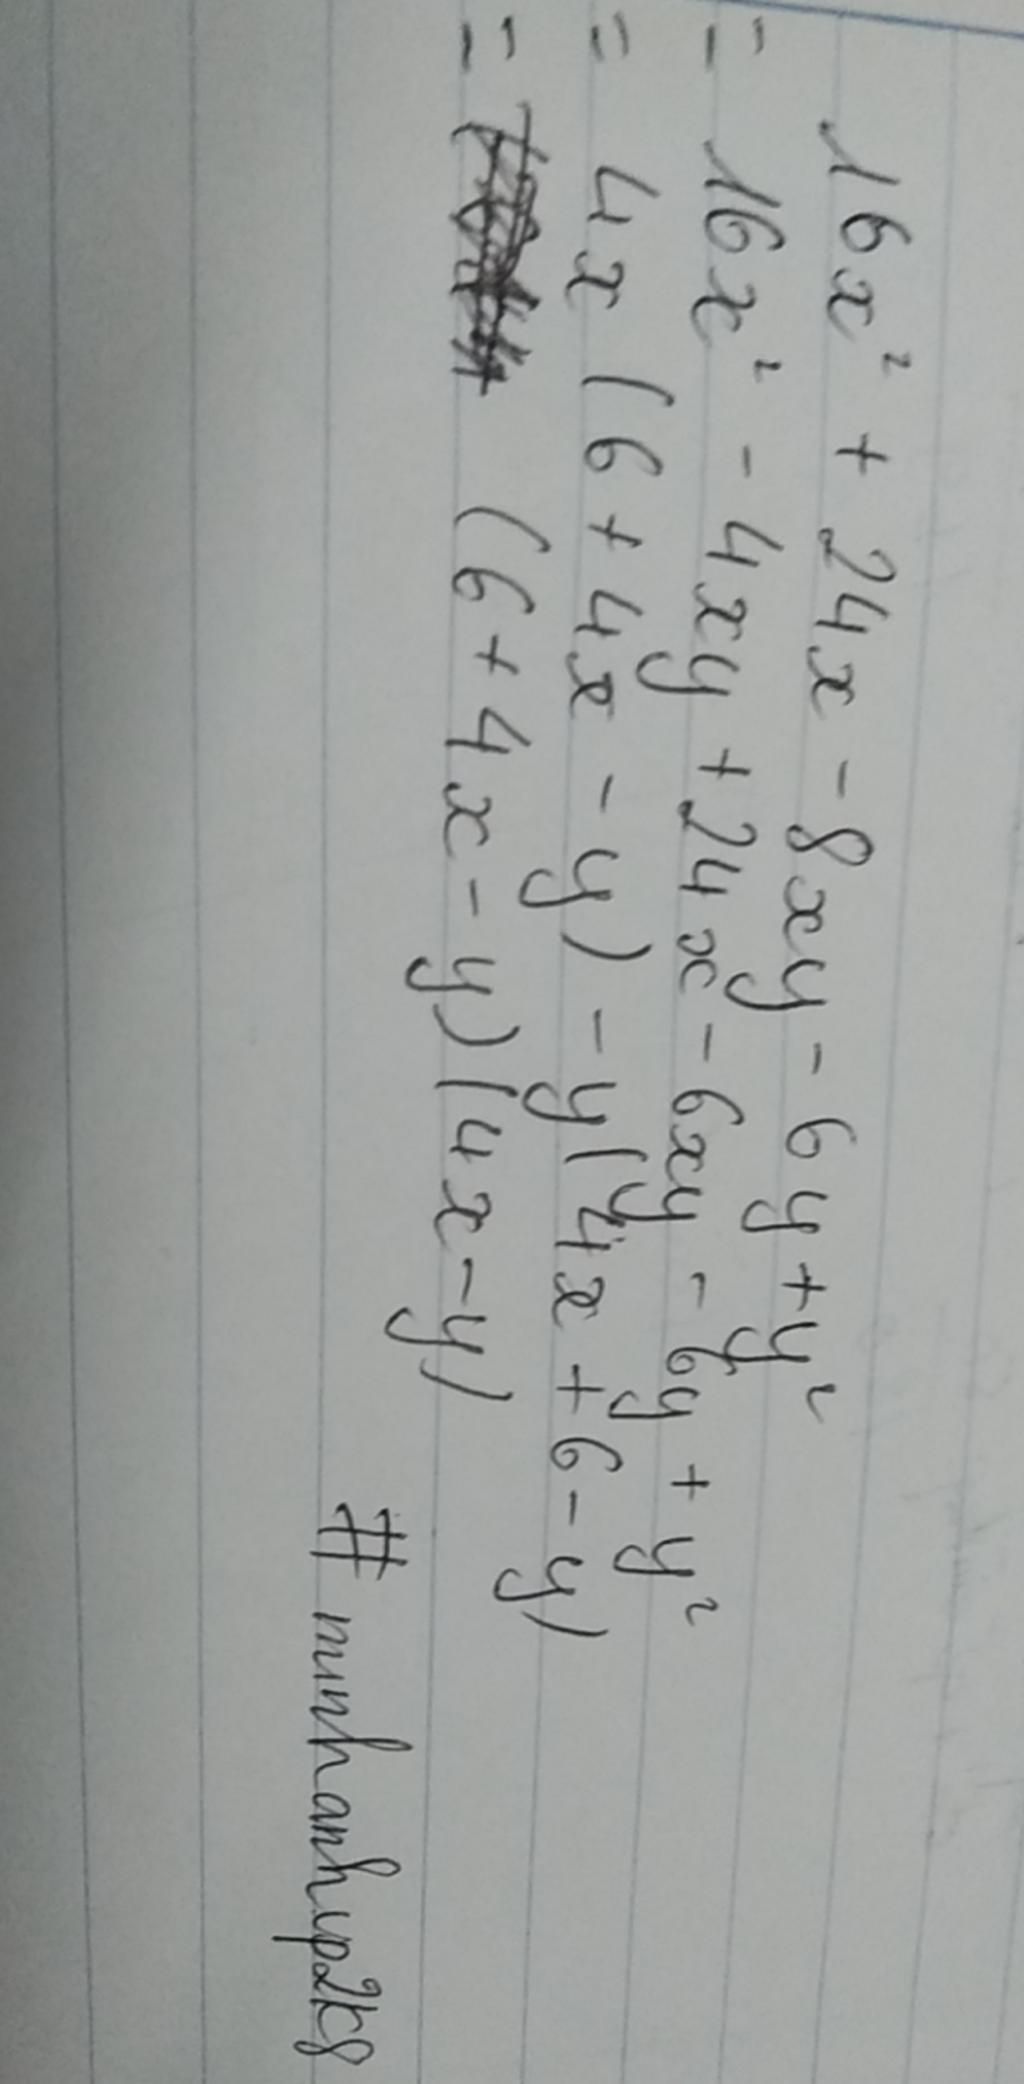 16x² + 24x - 8xy - 6y + y²
= 16x² - 4xy + 24x - 6xy - 6y + y²
= 4x (6 + 4x - y) - y(4x + 6 - y)
= (6 + 4x - y)(4x - y)
# minhanhvp2k8